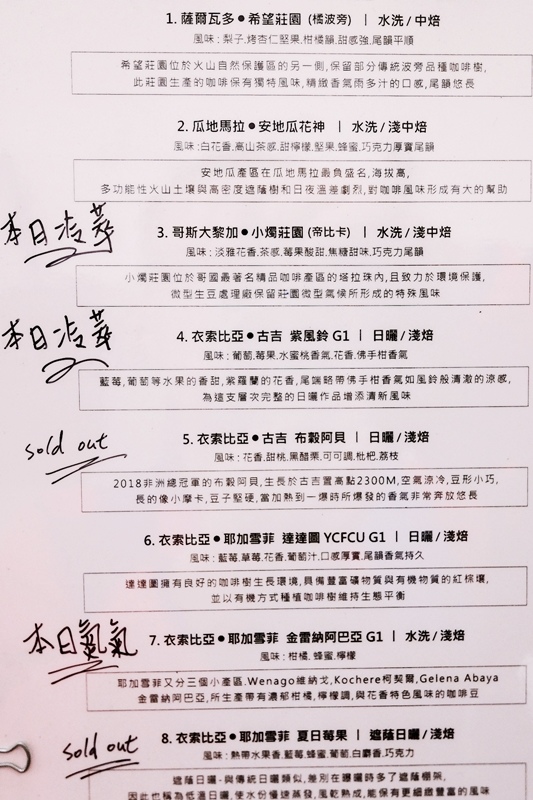 1. 薩爾瓦多●希望莊園 (橘波旁) | 水洗/中焙
風味 : 梨子.烤杏仁堅果.柑橘韻.甜感強.尾韻平順
希望莊園位於火山自然保護區的另一側,保留部分傳統波旁品種咖啡樹,
此莊園生產的咖啡保有獨特風味,精緻香氣雨多汁的口感,尾韻悠長
2. 瓜地馬拉●安地瓜花神 | 水洗/淺中焙
風味 : 白花香.高山茶感.甜檸檬.堅果.蜂蜜.巧克力厚實尾韻
安地瓜產區在瓜地馬拉最負盛名,海拔高,
多功能性火山土壤與高密度遮蔭樹和日夜溫差劇烈,對咖啡風味形成有大的幫助
本日冷萃
3. 哥斯大黎加●小燭莊園 (帝比卡) | 水洗/淺中焙
風味 : 淡雅花香.茶感.莓果酸甜.焦糖甜味.巧克力尾韻
小燭莊園位於哥國最著名精品咖啡產區的塔拉珠內,且致力於環境保護,
微型生豆處理廠保留莊園微型氣候所形成的特殊風味
本日冷萃
4. 衣索比亞●古吉 紫風鈴 G1 | 日曬/淺焙
風味 : 葡萄.莓果.水蜜桃香氣.花香.佛手柑香氣
藍莓,葡萄等水果的香甜,紫羅蘭的花香,尾端略帶佛手柑香氣如風鈴般清澈的涼感,
為這支層次完整的日曬作品增添清新風味
sold out
5. 衣索比亞●古吉 布穀阿貝 | 日曬/淺焙
風味 : 花香.甜桃.黑醋栗.可可調.枇杷.荔枝
2018非洲總冠軍的布穀阿貝,生長於古吉置高點2300M,空氣涼冷,豆形小巧,
長的像小摩卡,豆子堅硬,當加熱到一爆時所爆發的香氣非常奔放悠長
6. 衣索比亞●耶加雪菲 達達圖 YCFCU G1 | 日曬/淺焙
風味 : 藍莓.草莓.花香.葡萄汁.口感厚實.尾韻香氣持久
達達圖擁有良好的咖啡樹生長環境,具備豐富礦物質與有機物質的紅棕壤,
並以有機方式種植咖啡樹維持生態平衡
本日氮氣
7. 衣索比亞●耶加雪菲 金雷納阿巴亞 G1 | 水洗/淺焙
風味 : 柑橘.蜂蜜.檸檬
耶加雪菲又分三個小產區.Wenago維納戈,Kochere柯契爾,Gelena Abaya
金雷納阿巴亞,所生產帶有濃郁柑橘,檸檬調,與花香特色風味的咖啡豆
sold out
8. 衣索比亞●耶加雪菲 夏日莓果 | 遮蔭日曬/淺焙
風味 : 熱帶水果香.藍莓.蜂蜜.葡萄.白麝香.巧克力
遮蔭日曬-與傳統日曬類似,差別在曝曬時多了遮蔭棚架,
因此也稱為低溫日曬,使水份慢速蒸發,風乾熟成,能保有更細緻豐富的風味